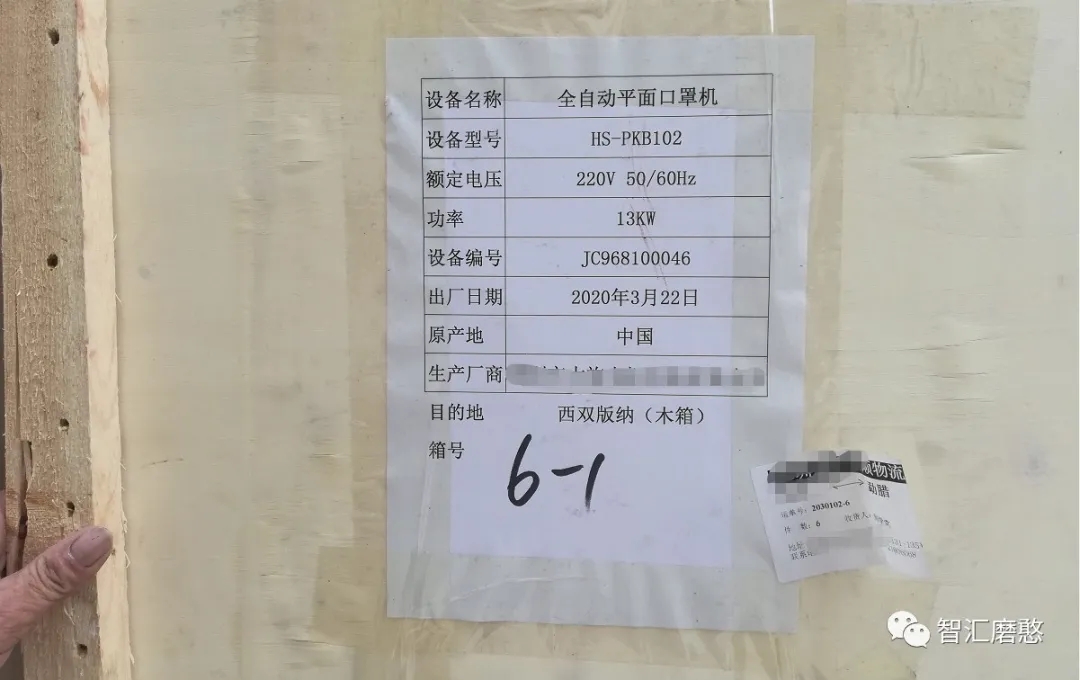 设备名称 全自动平面口罩机
设备型号 HS-PKB102
额定电压 220V 50/60Hz
功率 13KW
设备编号 JC968100046
出厂日期 2020年3月22日
原产地 中国
生产厂商
目的地 西双版纳（木箱）
箱号 6-1
物流
勐腊
运单号: 2030102-6
件 数: 6 收货人:
地址
联系
智汇磨憨